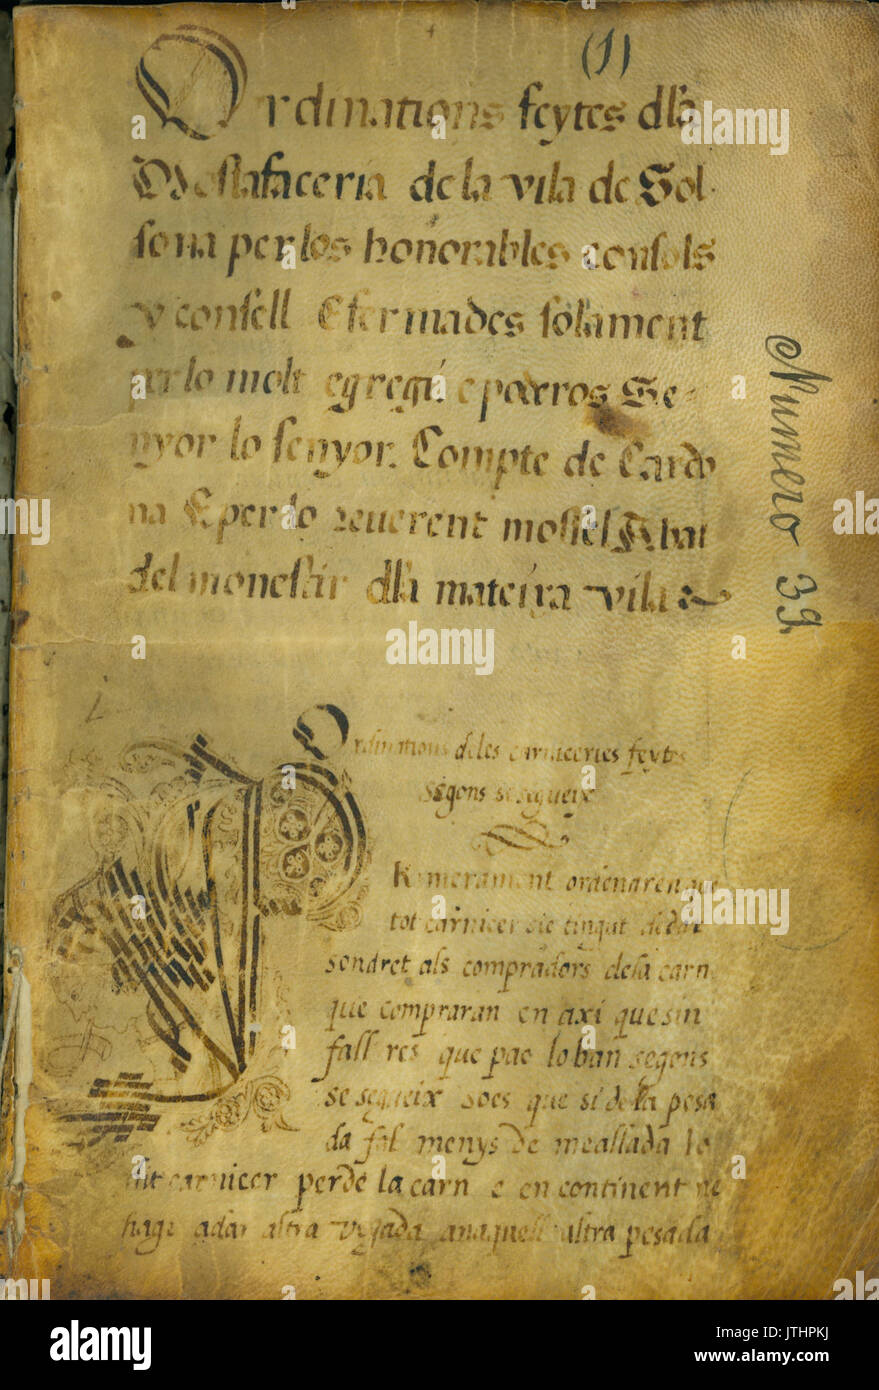 (1)
Ordinations feytes dla
Mostafaceria de la vila de Sol
sona per los honorables consols
y consell E fermades solament
per lo molt egregii e poderos Se-
nyor lo senyor. Compte de Cardo
na E per lo reuerent mossel Abat
del monestir dla mateixa vila
Numero 39.
Ordinations deles carniceries feytes
segons se segueix
Primerament ordenaren que
tot carnicer sie tingut de dar
son dret als compradors dela carn
que compraran en axi que sin
fall res que pae lo ban segons
se segueix soes que si de la pesa
da fal menys de meallada lo
dit carnicer perde la carn e en continent ne
hage adar altra vegada anaquell altra pesada
alamy
Image ID: JTHPKJ
www.alamy.com